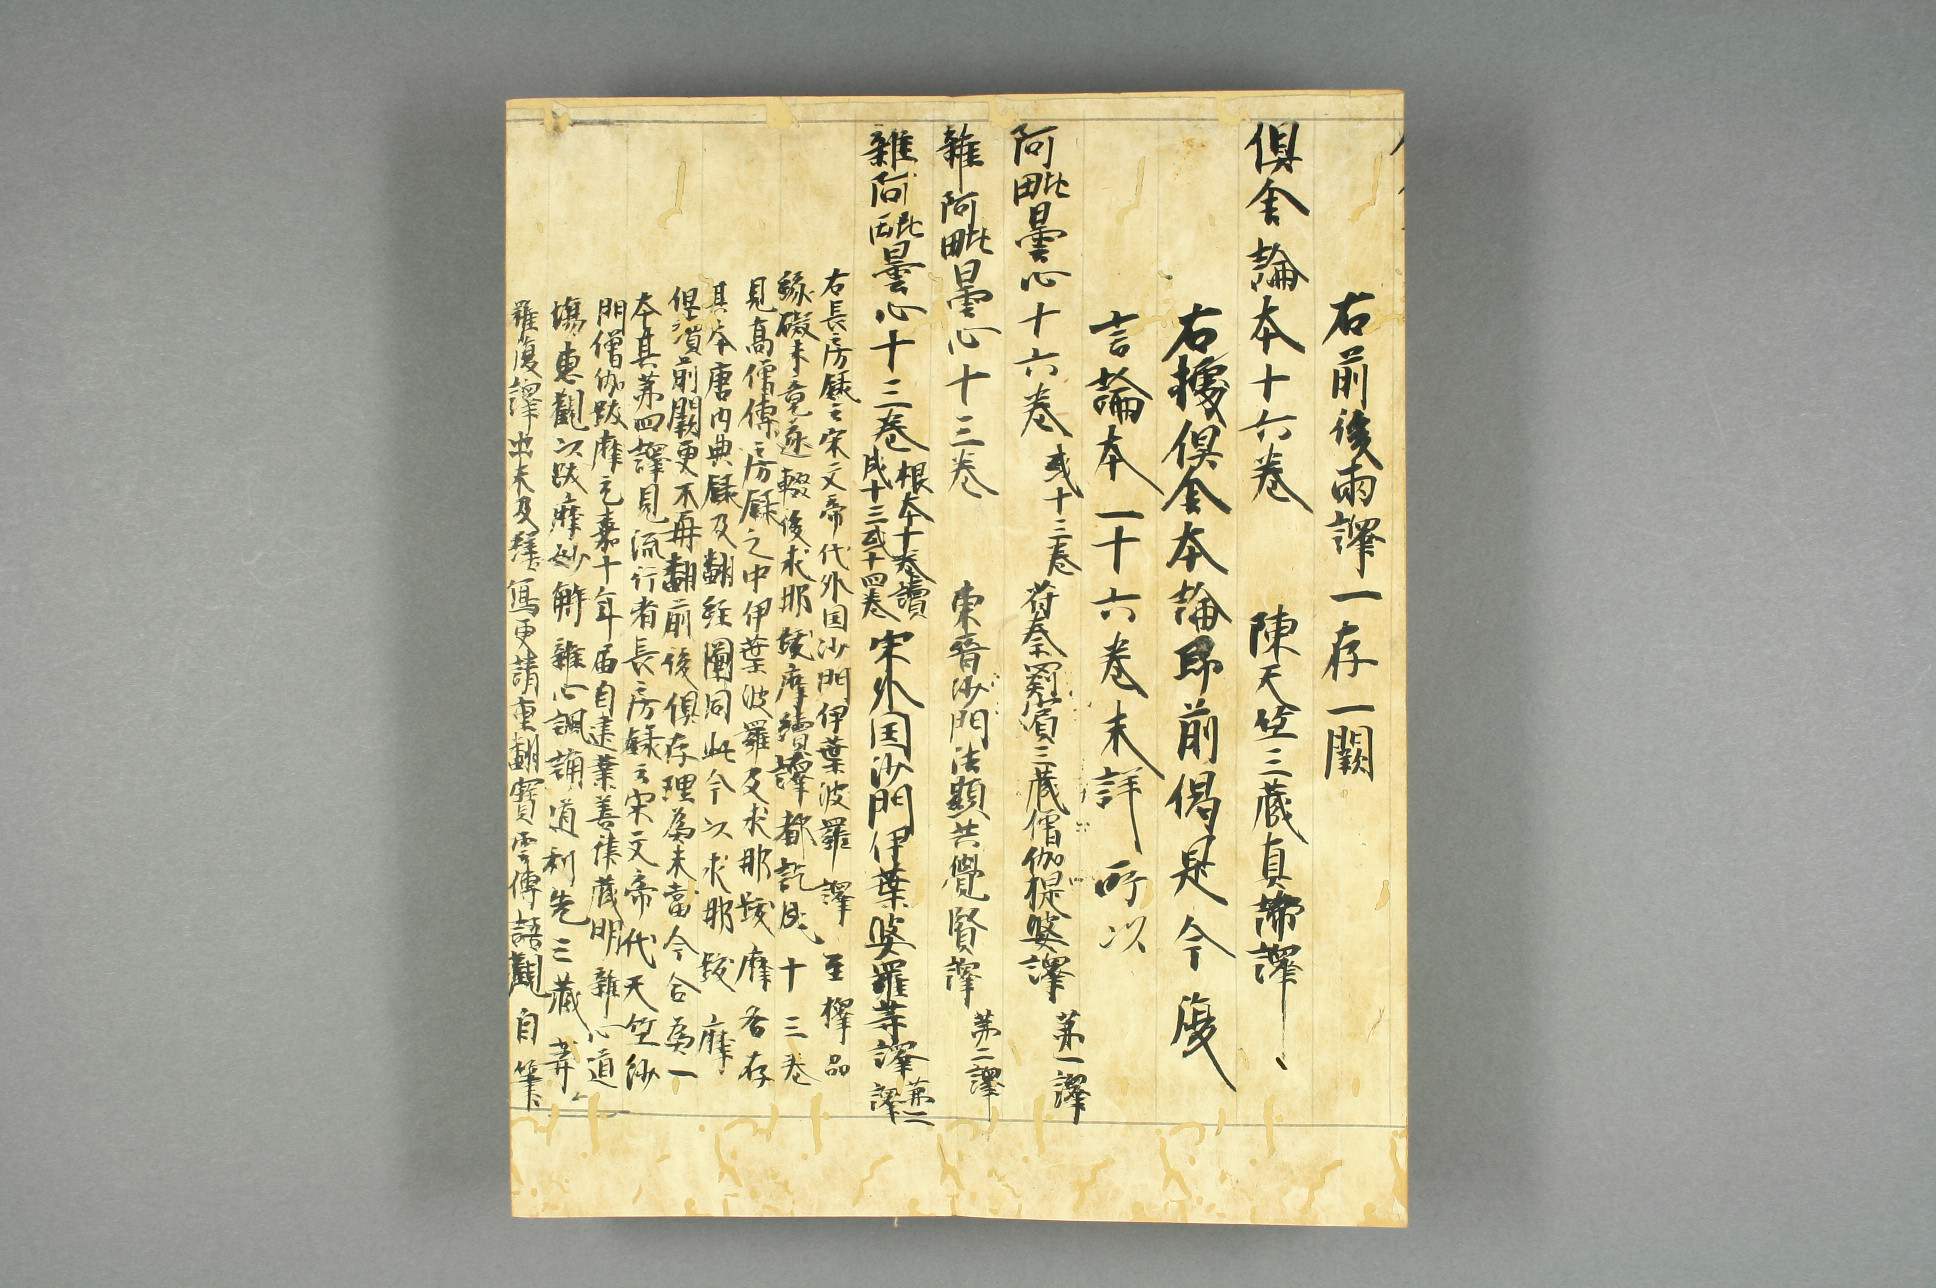 右前後兩譯一存一闕
俱舍論本十六卷 陳天竺三藏真諦譯
右檢俱舍本論即前偈是今復
言論本一十六卷未詳所以
阿毗曇心十六卷 或十三卷 苻秦罽賓三藏僧伽提婆譯 第一譯
雜阿毗曇心十三卷 東晉沙門法顯共覺賢譯 第二譯
雜阿毗曇心十三卷 根本十卷續
成十三或十四卷 宋外国沙門伊葉婆羅等譯 第三
譯
右長房錄云宋文帝代外国沙門伊葉波羅譯至擇品
緣礙未竟遂輟後求那跋摩續譯都訖成十三卷
見高僧傳房錄之中伊葉波羅及求那跋摩各存
其本唐內典錄及翻經圖同此今以求那跋摩
但湏前闕更不再翻前後俱存理為未當今合為一
本其苐四譯見流行者長房錄云宋文帝代天竺沙
門僧伽跋摩元嘉十年届自建業善律藏明雜心道
場惠觀以跋摩妙解雜心諷誦道利先三藏弄
羅復譯出未及繕寫更請重翻寶雲傳語觀自筆